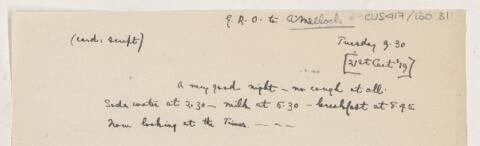 E.R.O. to A Mallock. CUS417/130 31
(card: script)
Tuesday 9.30
[21st Oct '19]
A very good night – no cough at all.
Soda water at 2.30 – milk at 5.30 – breakfast at 8.45
Now looking at the Times. – – –